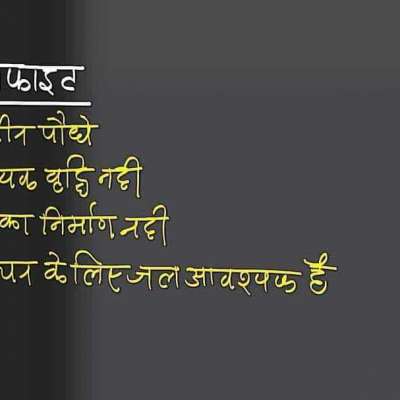 फाइट
पौधे
वृद्धि नही
का निर्माण नही
के लिए जल आवश्यक है